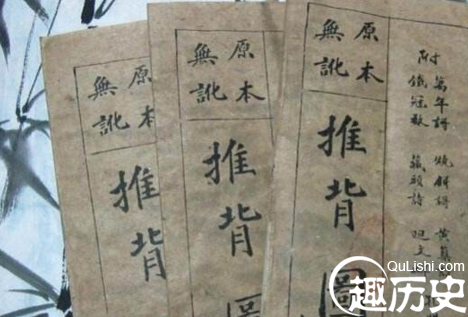 萬年譜 燒餅譜 黃
附 鐵冠數 藏頭詩
原本
無訛
推背圖
原本
無訛
推背圖
原本
無訛
推背
QuLishi.com
趣历史